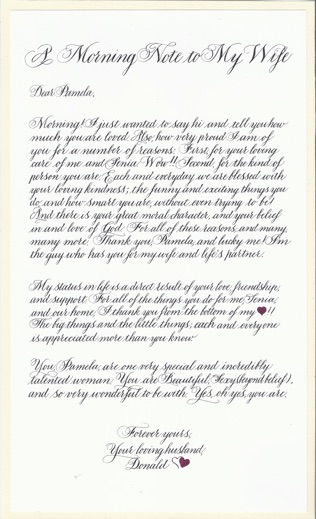 A Morning Note to My Wife
Dear Pamela,
Morning! I just wanted to say hi and tell you how
much you are loved. Also, how very proud I am of
you for a number of reasons. First, for your loving
care of me and Tonia. Wow!! Second, for the kind of
person you are. Each and everyday we are blessed with
your loving kindness; the funny and exciting things you
do, and how smart you are, without even trying to be!
And there is your great moral character, and your belief
in and love of God. For all of these reasons, and many,
many more, Thank you, Pamela, and lucky me! I'm
the guy who has you for my wife and life's partner.
My status in life is a direct result of your love, friendship,
and support. For all of the things you do for me, Tonia,
and our home, I thank you from the bottom of my ♥!!
The big things and the little things, each and everyone
is appreciated more than you know.
You, Pamela, are one very special and incredibly
talented woman. You are Beautiful, Sexy (beyond belief),
and so very wonderful to be with. Yes, oh yes, you are.
Forever yours,
Your loving husband,
Donald